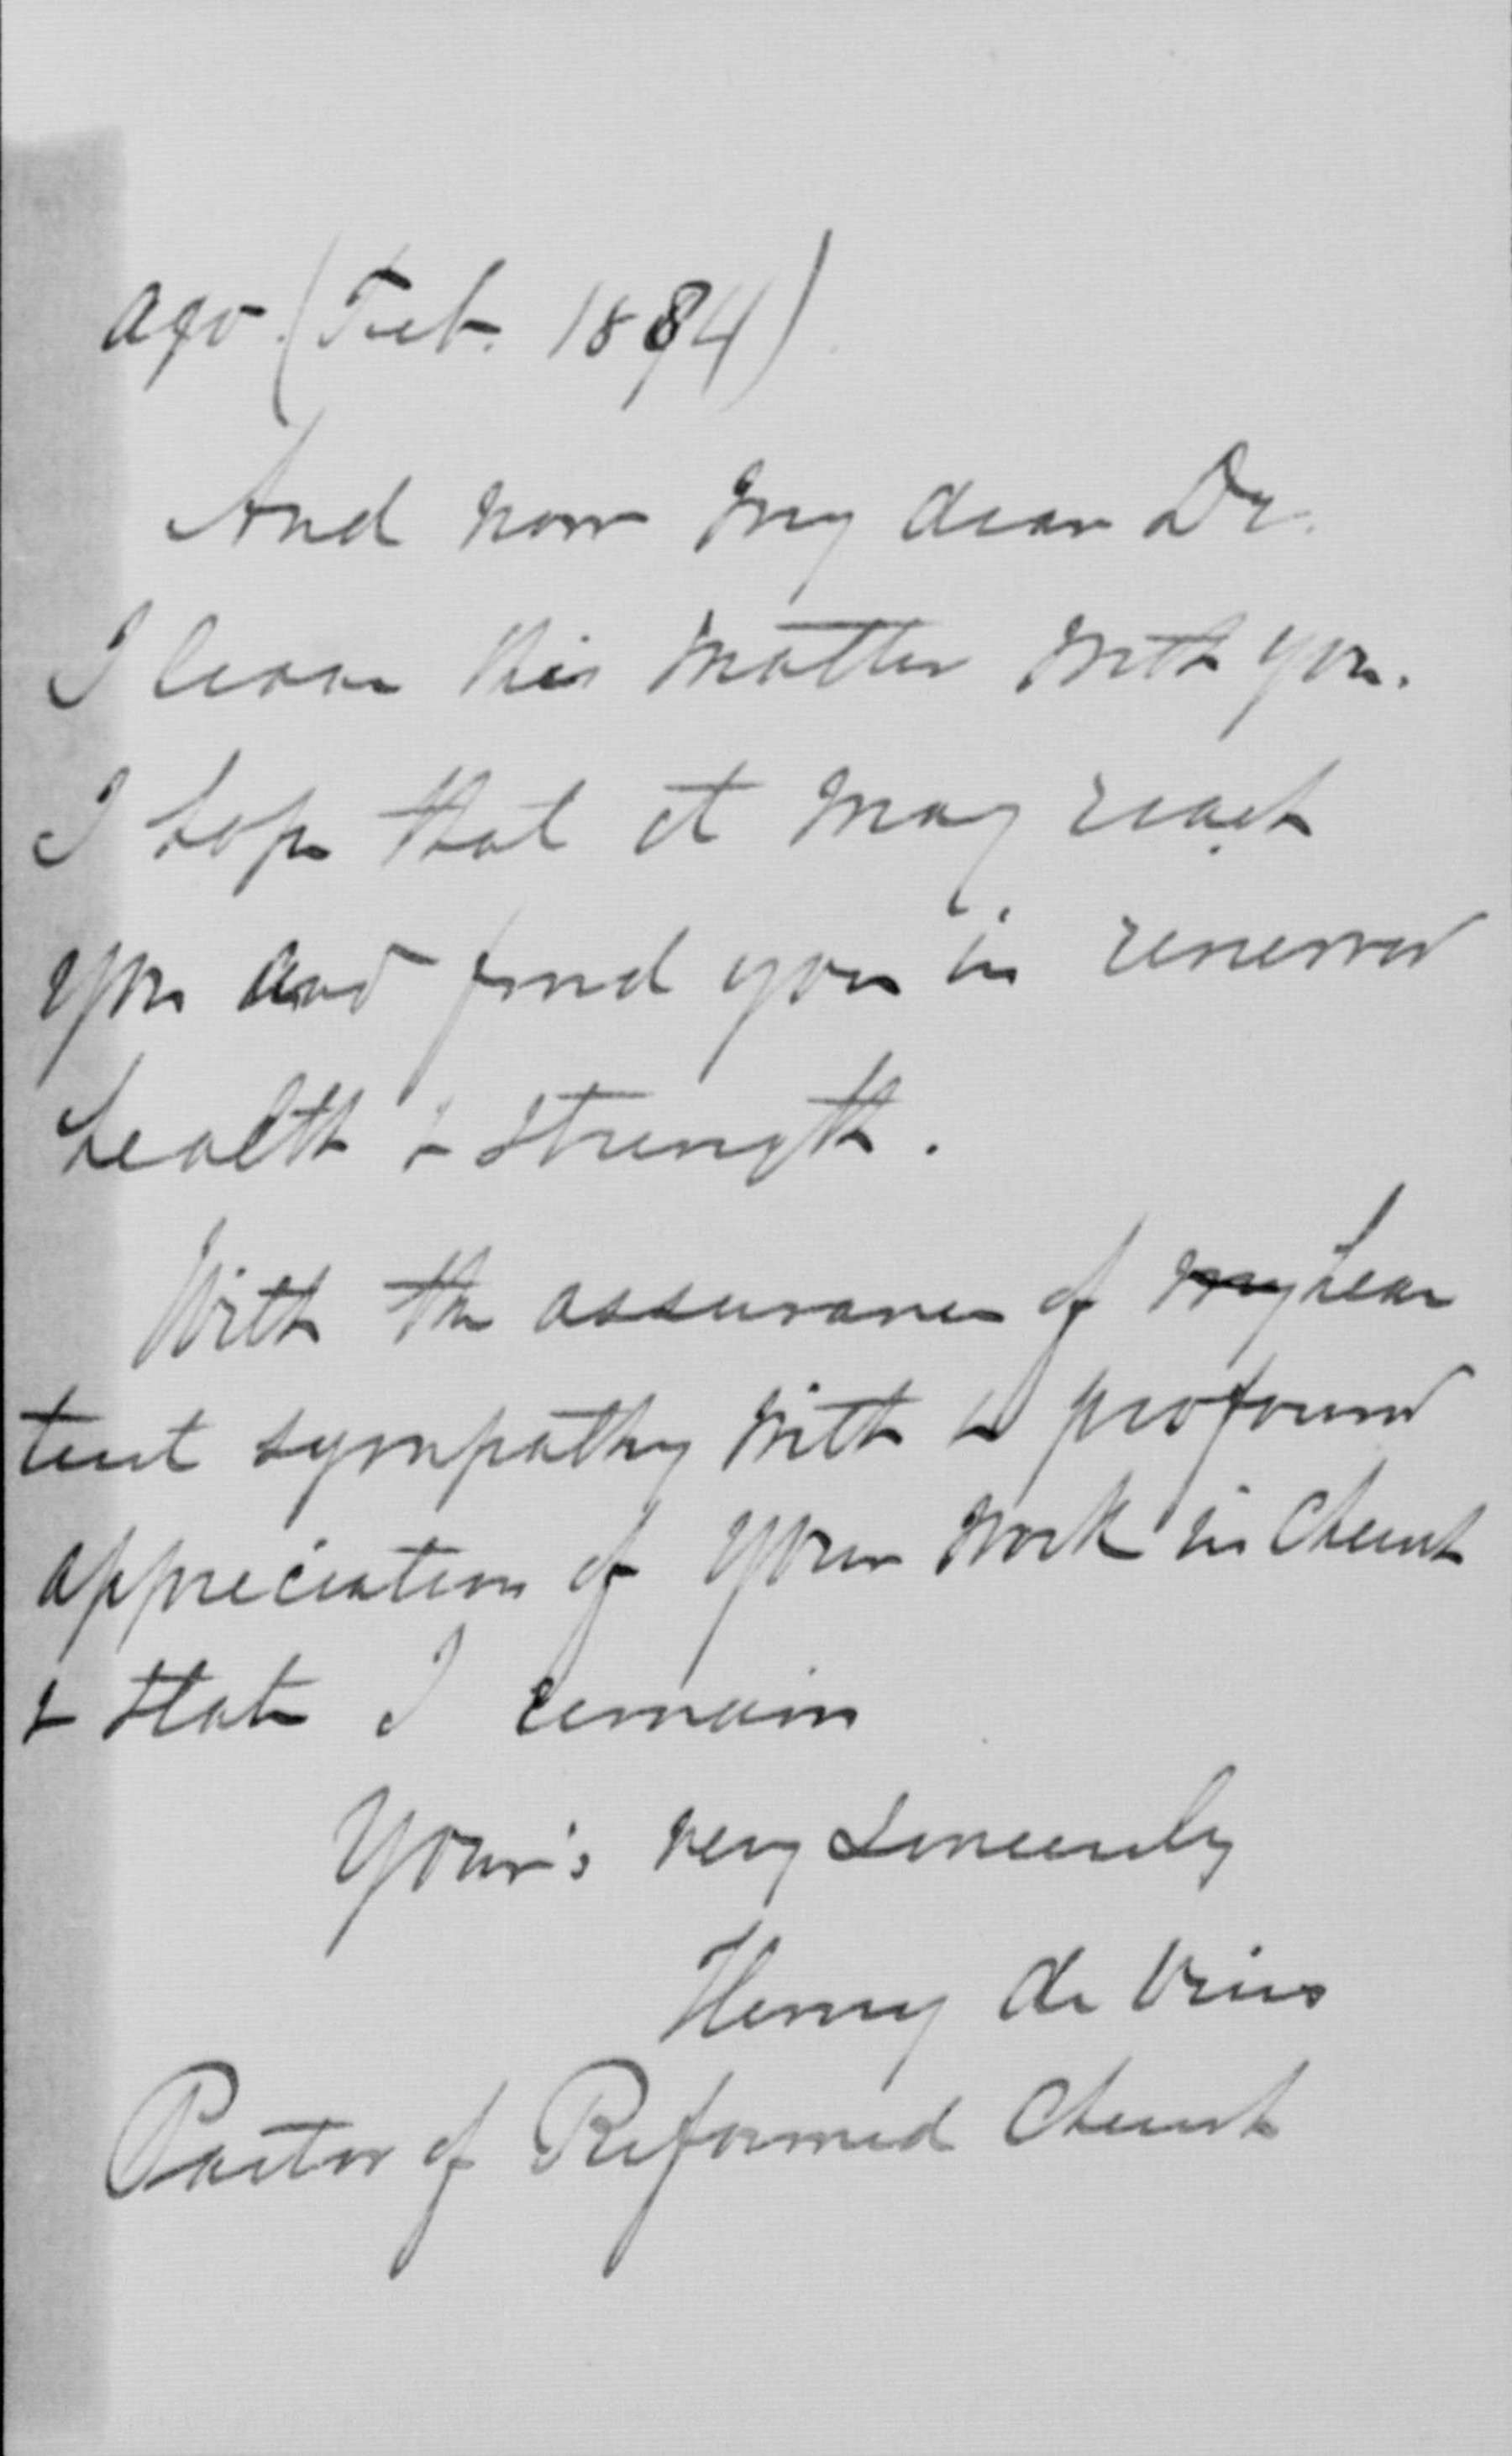 ago (Feb. 1884)
And now my dear Dr.
I leave this matter with you.
I hope that it may reach
you and find you in renewed
health & strength.
With the assurance of my hear
tiest sympathy with & profound
appreciation of your work in Church
& State I remain
Your's very sincerely
Henry de Vries
Pastor of Reformed Church